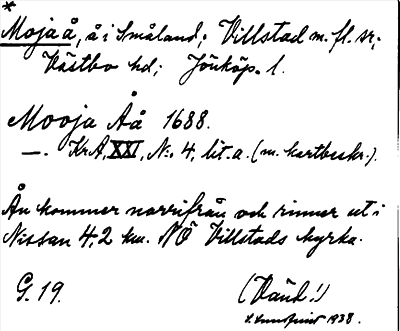 *
Mojaå, å i Småland; Villstad m. fl. sr;
Västbo hd; Jönköp. l.
Mooja Åå 1688.
—. KrA, XXI, N:o 4, lit. a. (m. kartbeskr.).
Ån kommer norrifrån och rinner ut i
Nissan 4,2 km. NÖ Villstads kyrka.
G. 19.
(Vänd!)
1938.